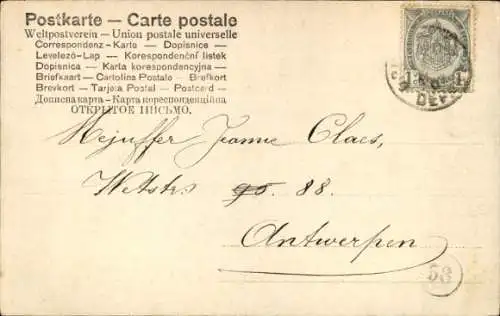 Postkarte — Carte postale
Weltpostverein — Union postale universelle
Correspondenz-Karte — Dopisnice
Levelező-Lap — Korespondenční lístek
Dopisnica — Karta korespondencyjna —
Briefkaart — Cartolina Postale — Brefkort
Brevkort — Tarjeta Postal — Postcard —
Дописна карта — Карта кореспонденційна
ОТКРЫТОЕ ПИСЬМО.
Mejuffer Jeanne Claes,
Wetstr 90. 88.
Antwerpen
53